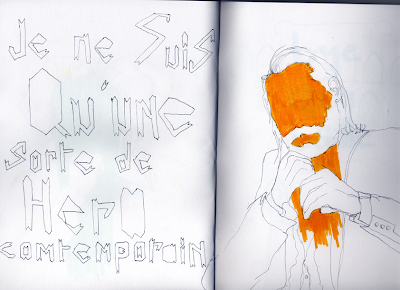 Je ne Suis
Qu'une
Sorte de
Hero
comtemporain